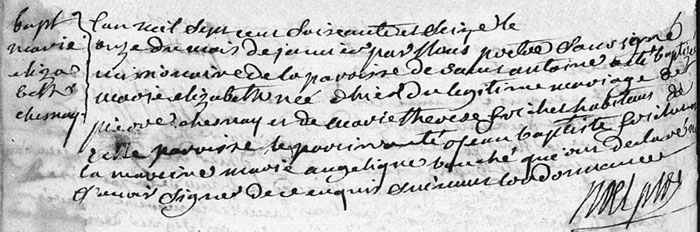 bapt
marie
eliza
beth
chesnay
L'an mil sept cent soixante et seize le
onze du mois de janvier par Nous prêtre soussigné
missionaire de la paroisse de saint antoine a été baptisé
marie elizabeth née d'hier du legitime mariage de
pierre chesnay et de marie therese habitans de
cette paroisse le parrain a été jean baptiste
la maraine marie angelique bouché qui ont declaré ne
savoir signer de ce enquis suivant l'ordonnance
Noel ptre